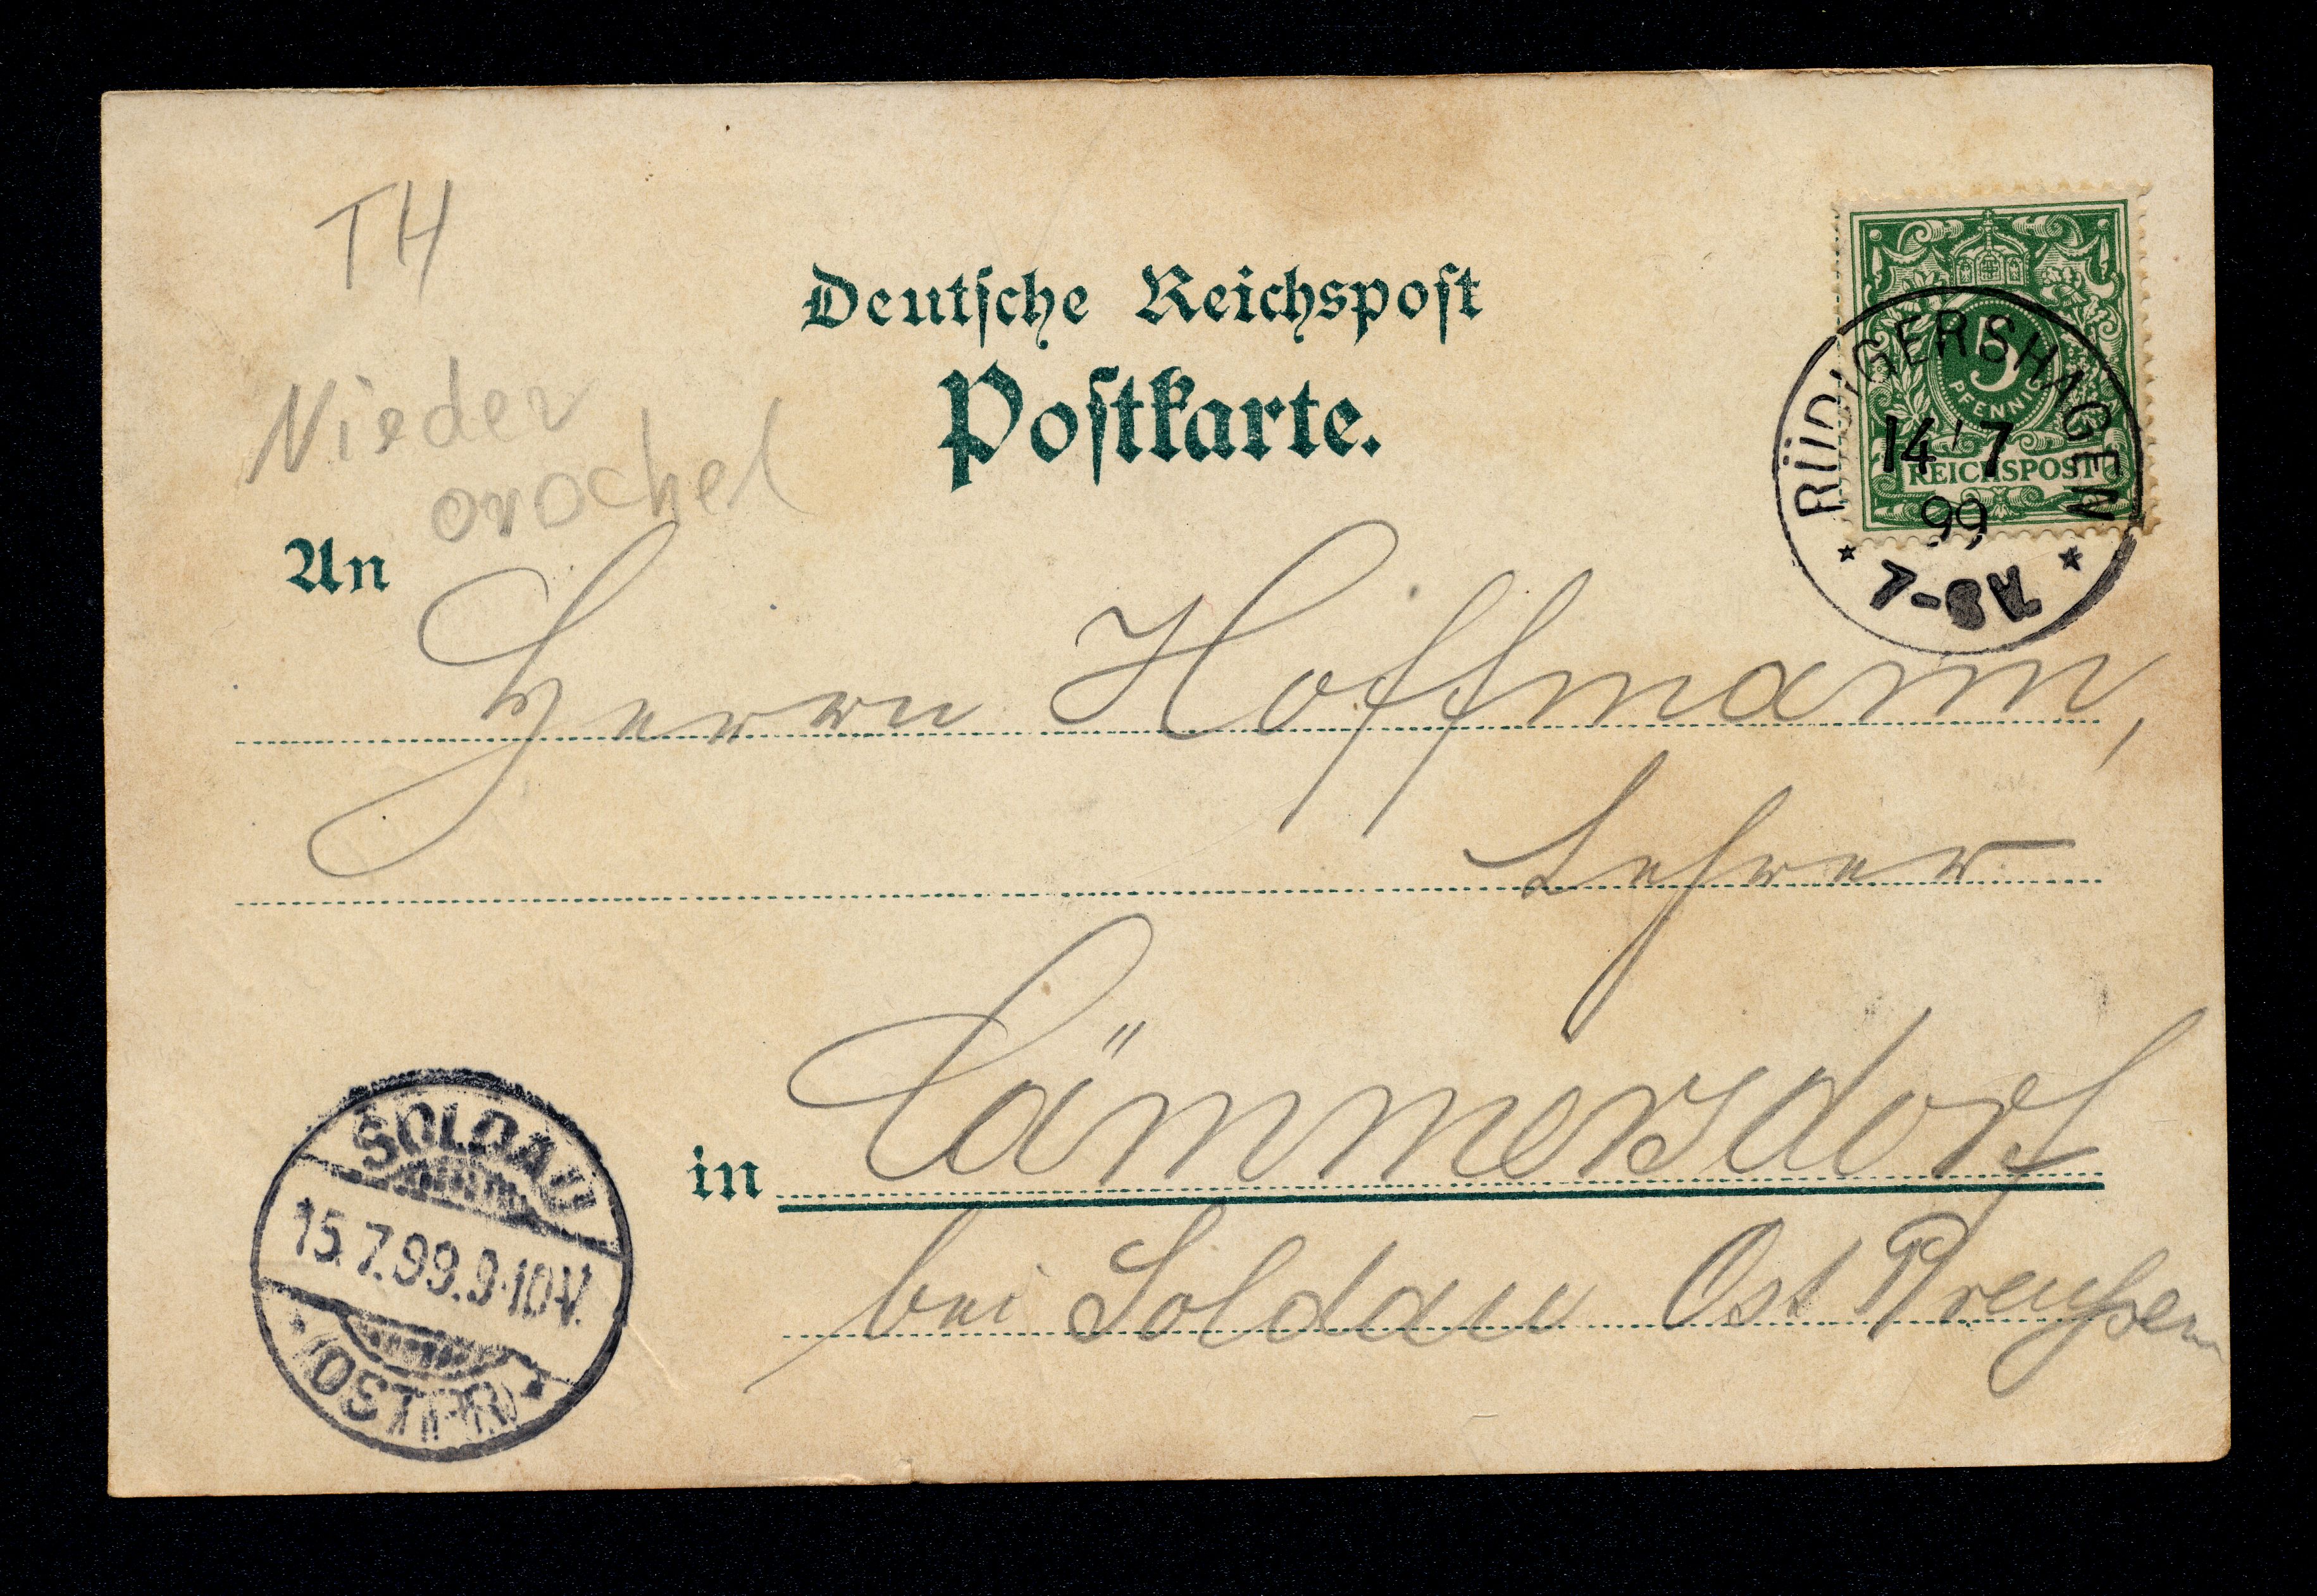 TH
Deutsche Reichspost
Postkarte.
Nieder
orochel
5
PFENNIG
REICHSPOST
RÜDIGERSHAGEN
14 7
99
* 7-8V *
An
Herrn Hoffmann,
Lehrer
in Cämmersdorf
bei Soldau Ost Preußen
SOLDAU
15.7.99.9-10V.
* (OSTPR) *